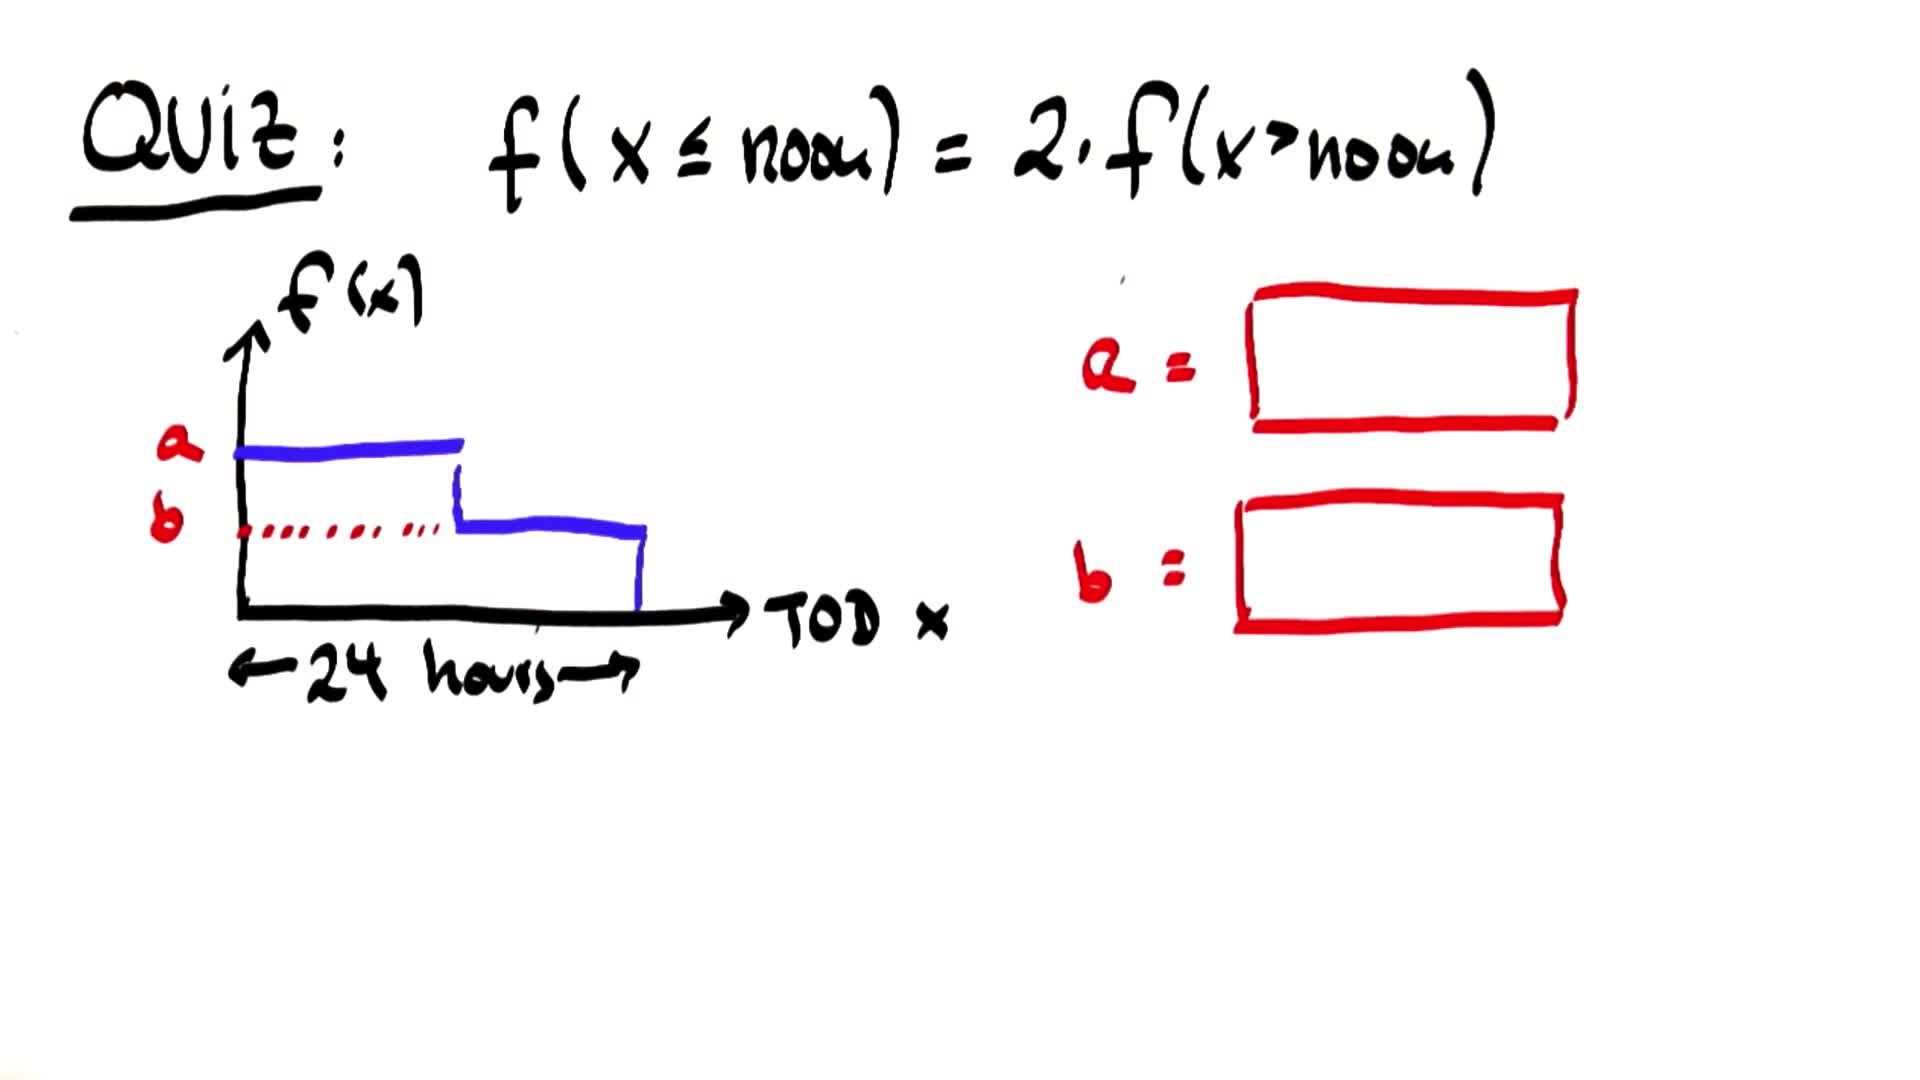 Quiz: f(x ≤ noon) = 2·f(x>noon)
f(x)
a =
a
b
b =
TOD x
24 hours